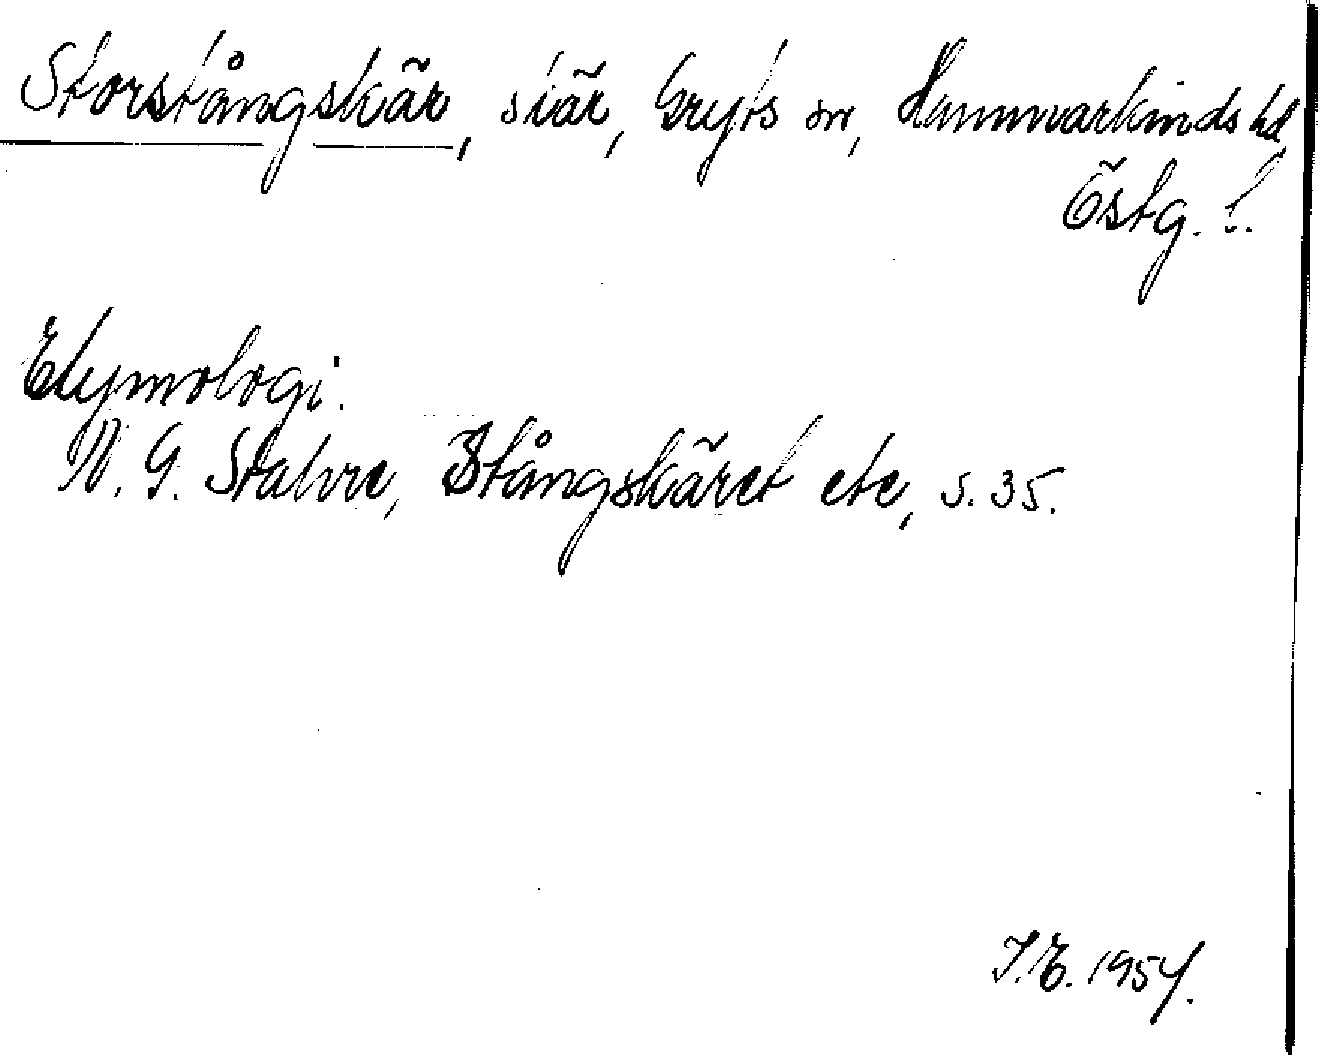 Storstångskär, skär, Gryts sn, Hammarkinds hd,
Östg. l.
Etymologi.
N. G. Stahre, Stångskäret etc, s. 35.
I.E. 1954.